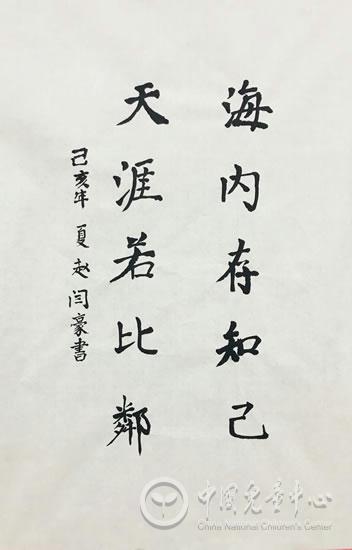 海内存知己
天涯若比鄰
己亥年夏赵闫豪書
中国儿童中心
China National Children's Center